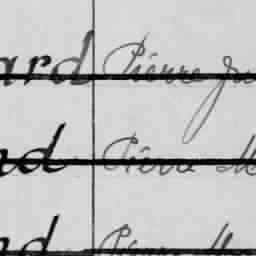 ard Pierre Ju
nd Pierre M
nd Pierre M